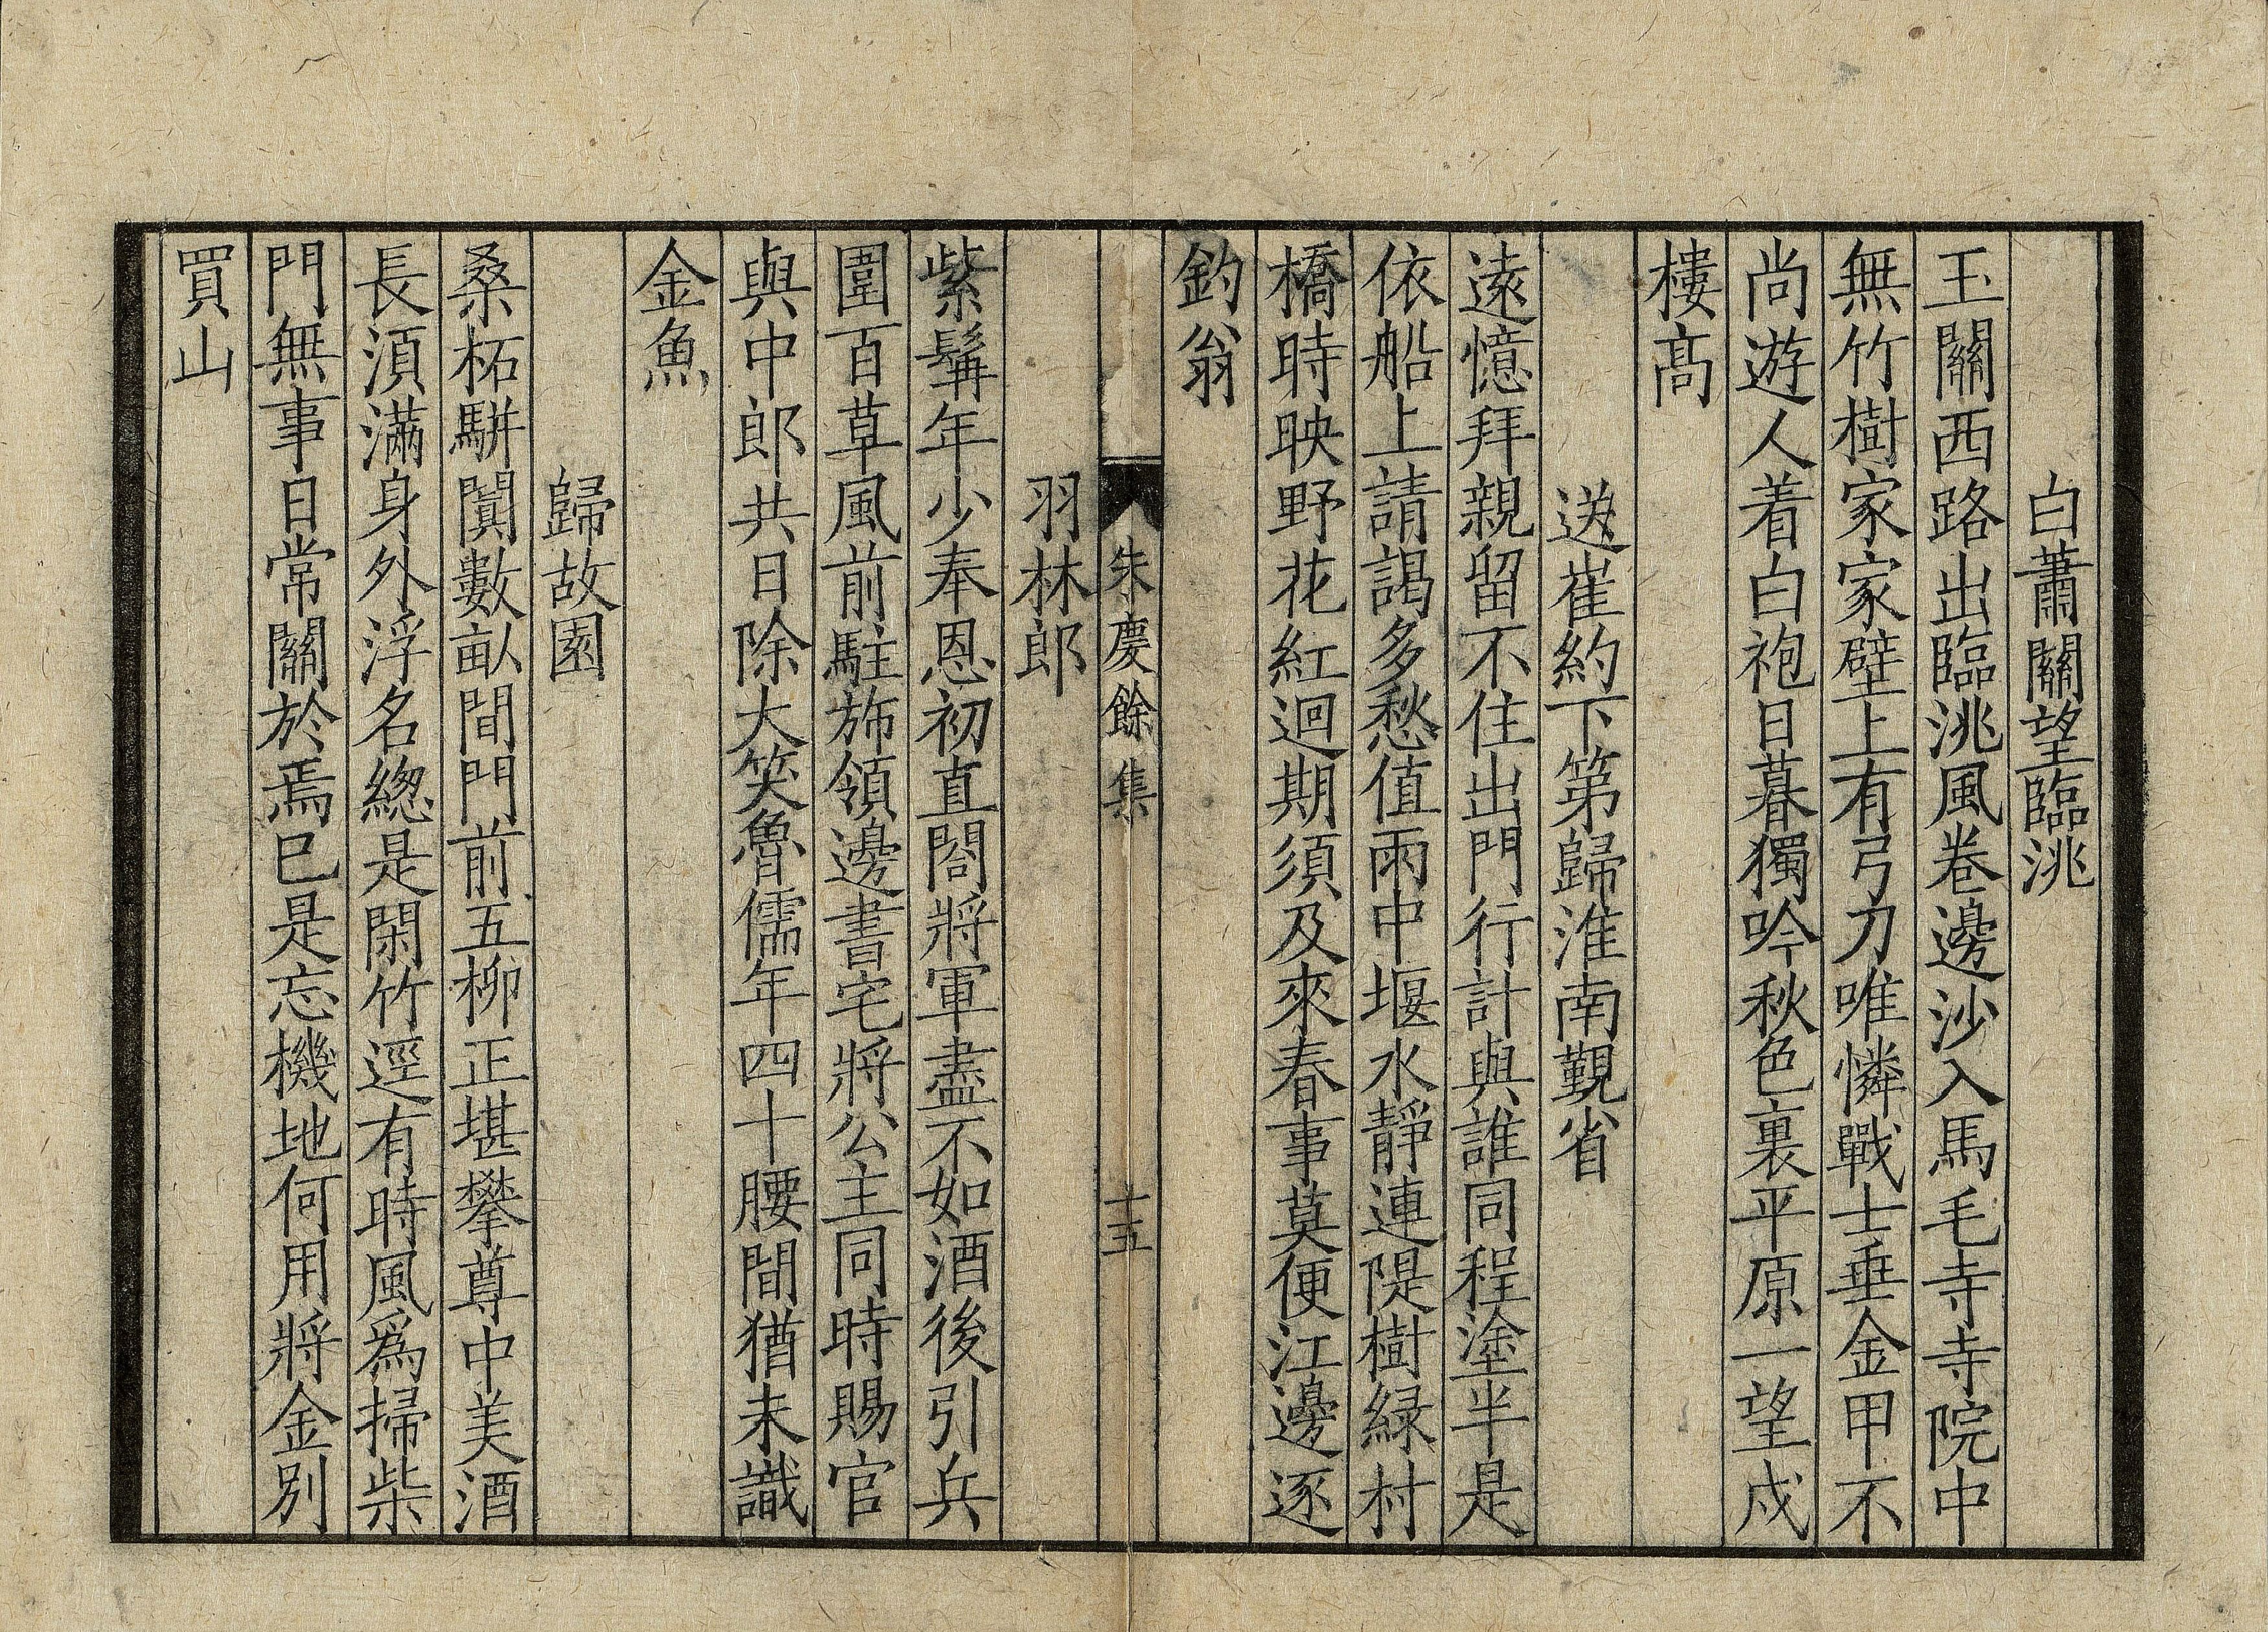 白蕭關望臨洮
玉關西路出臨洮風卷邊沙入馬毛寺寺院中
無竹樹家家壁上有弓刀唯憐戰士垂金甲不
尚遊人着白袍日暮獨吟秋色裏平原一望戍
樓髙
送崔約下第歸淮南覲省
遠憶拜親留不住出門行計與誰同程塗半是
依船上請謁多愁值雨中堰水靜連隄樹緑村
橋時映野花紅迴期須及來春事莫便江邊逐
釣翁
朱慶餘集
十五
羽林郎
紫髯年少奉恩初直閤將軍盡不如酒後引兵
圍百草風前駐斾領邊書宅將公主同時賜官
與中郎共日除大笑魯儒年四十腰間猶未識
金魚
歸故園
桑柘駢闐數畝間門前五柳正堪攀尊中美酒
長湏滿身外浮名緫是閑竹逕有時風爲掃柴
門無事日常關於焉已是忘機地何用將金別
買山